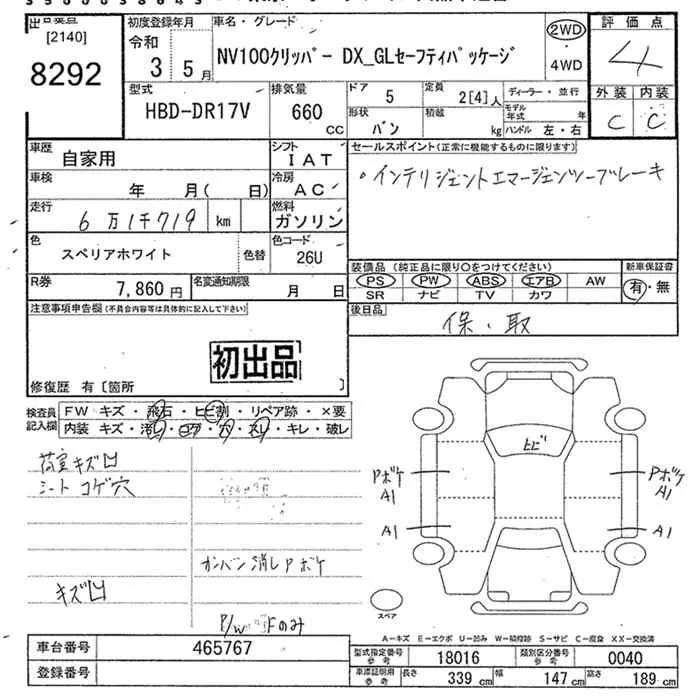 出品番号
[2140]
8292
初度登録年月
令和
3 5月
車名・グレード
NV100クリッパー DX_GLセーフティパッケージ
2WD
・
4WD
評価点
4
型式
HBD-DR17V
排気量
660
CC
ドア
5
定員
2[4]人
ディーラー・並行
形状
バン
積載
kg
モデル年式 年
ハンドル 左・右
外装 内装
C C
車歴
自家用
シフト
IAT
車検
年 月( 日)
冷房
AC
走行
6万1千719 km
燃料
ガソリン
色
スペリアホワイト
色替
色コード
26U
R券
7,860円
名変通知期限
月 日
セールスポイント(正常に機能するものに限ります)
・インテリジェントエマージェンシーブレーキ
装備品(純正品に限り○をつけてください)
PS PW ABS エアB AW
SR ナビ TV カワ
新車保証書
有・無
後日品
保・取
注意事項申告欄(不具合内容等は具体的に記入して下さい)
初出品
修復歴 有〔箇所 〕
検査員
記入欄
FW キズ・飛石・ヒビ割・リペア跡・×要
内装 キズ・汚レ・コゲ・穴・スレ・キレ・破レ
荷室キズ凹
シート コゲ穴
カンバン消しPボケ
キズ凹
P/W Fのみ
ヒビ
Pボケ
A1
A1
Pボケ
A1
A1
スペア
A-キズ E-エクボ U-凹み W-補修跡 S-サビ C-腐食 XX-交換済
車台番号
465767
登録番号
型式指定番号
参考
18016
類別区分番号
参考
0040
車庫証明用
参考
長さ
339 cm
幅
147 cm
高さ
189 cm